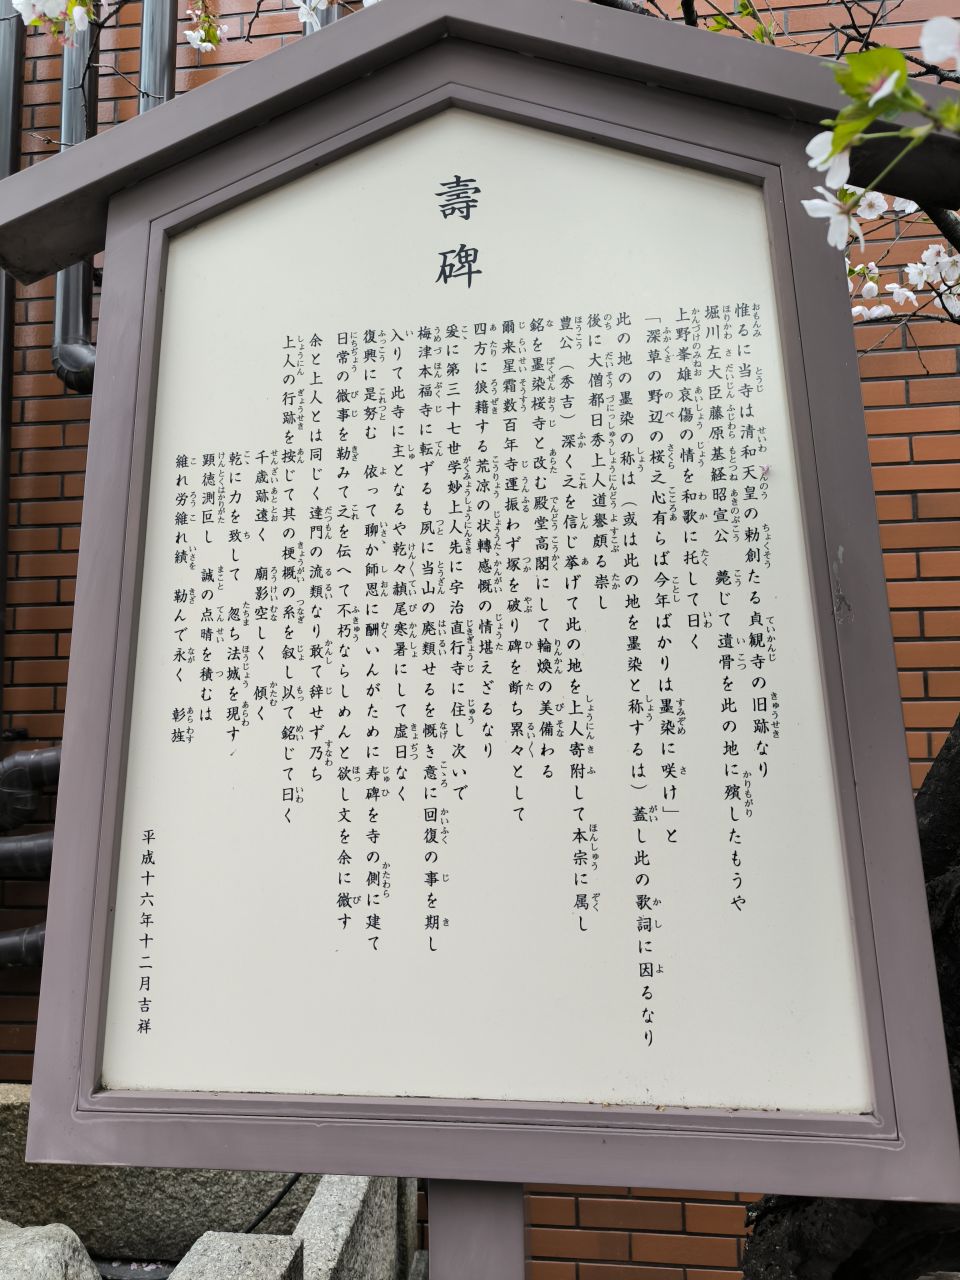 壽碑
惟るに当寺は清和天皇の勅創たる貞観寺の旧跡なり
堀川左大臣藤原基経昭宣公 薨じて遺骨を此の地に殯したもうや
上野峯雄哀傷の情を和歌に托して曰く
「深草の野辺の桜之心有らば今年ばかりは墨染に咲け」と
此の地の墨染の称は（或は此の地を墨染と称するは）蓋し此の歌詞に因るなり
後に大僧都日秀上人道譽頗る崇し
豊公（秀吉）深く之を信じ挙げて此の地を上人寄附して本宗に属し
銘を墨染桜寺と改む殿堂高閣にして輪煥の美備わる
爾来星霜数百年寺運振わず塚を破り碑を断ち累々として
四方に狼藉する荒凉の状轉感慨の情堪えざるなり
爰に第三十七世学妙上人先に宇治直行寺に住し次いで
梅津本福寺に転ずるも夙に当山の廃類せるを慨き意に回復の事を期し
入りて此寺に主となるや乾々 尾寒暑にして虚日なく
復興に是努む 依って聊か師恩に酬いんがために寿碑を寺の側に建て
日常の微事を勒みて之を伝へて不朽ならしめんと欲し文を余に微す
余と上人とは同じく達門の流類なり敢て辞せず乃ち
上人の行跡を按じて其の梗概の糸を叙し以て銘じて曰く
千歳跡遠く 廟影空しく 傾く
乾に力を致して 忽ち法城を現す
顕徳測叵し 誠の点晴を積むは
維れ労維れ績 勒んで永く 彰旌
平成十六年十二月吉祥